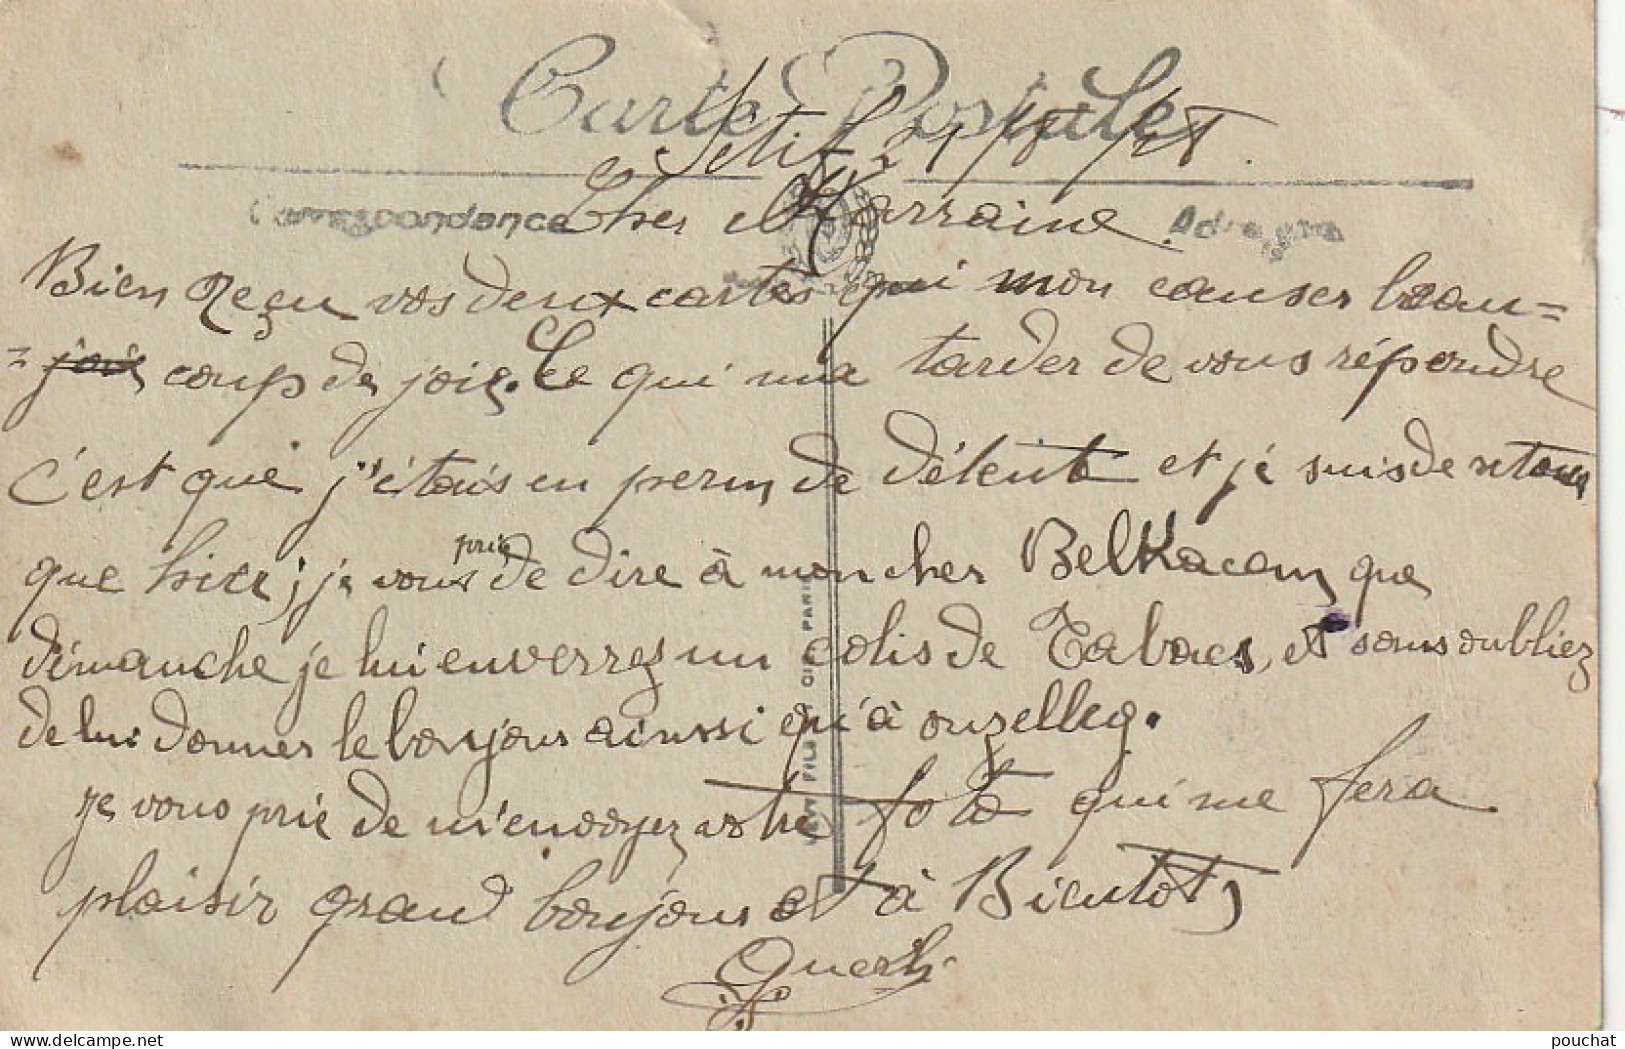 Carte Postale
Setif
Correspondance
Cher Marraine.
Adresse
Bien reçu vos deux cartes qui mon causer beau=
= joie coup de joie. Ce qui ma tarder de vous répondre
c'est que j'étais en perm de détente et je suis de retour
que hier; je vous prie de dire à mon cher Belkacem que
dimanche je lui enverrez un colis de Tabacs, et sous oubliez
de lui donner le bonjour ainssi qu'à ouzelleg.
je vous prie de m'envoyez votre foto qui me fera
plaisir grand bonjour et à Bientot
FILS CIE PARIS
www.delcampe.net
pouchat